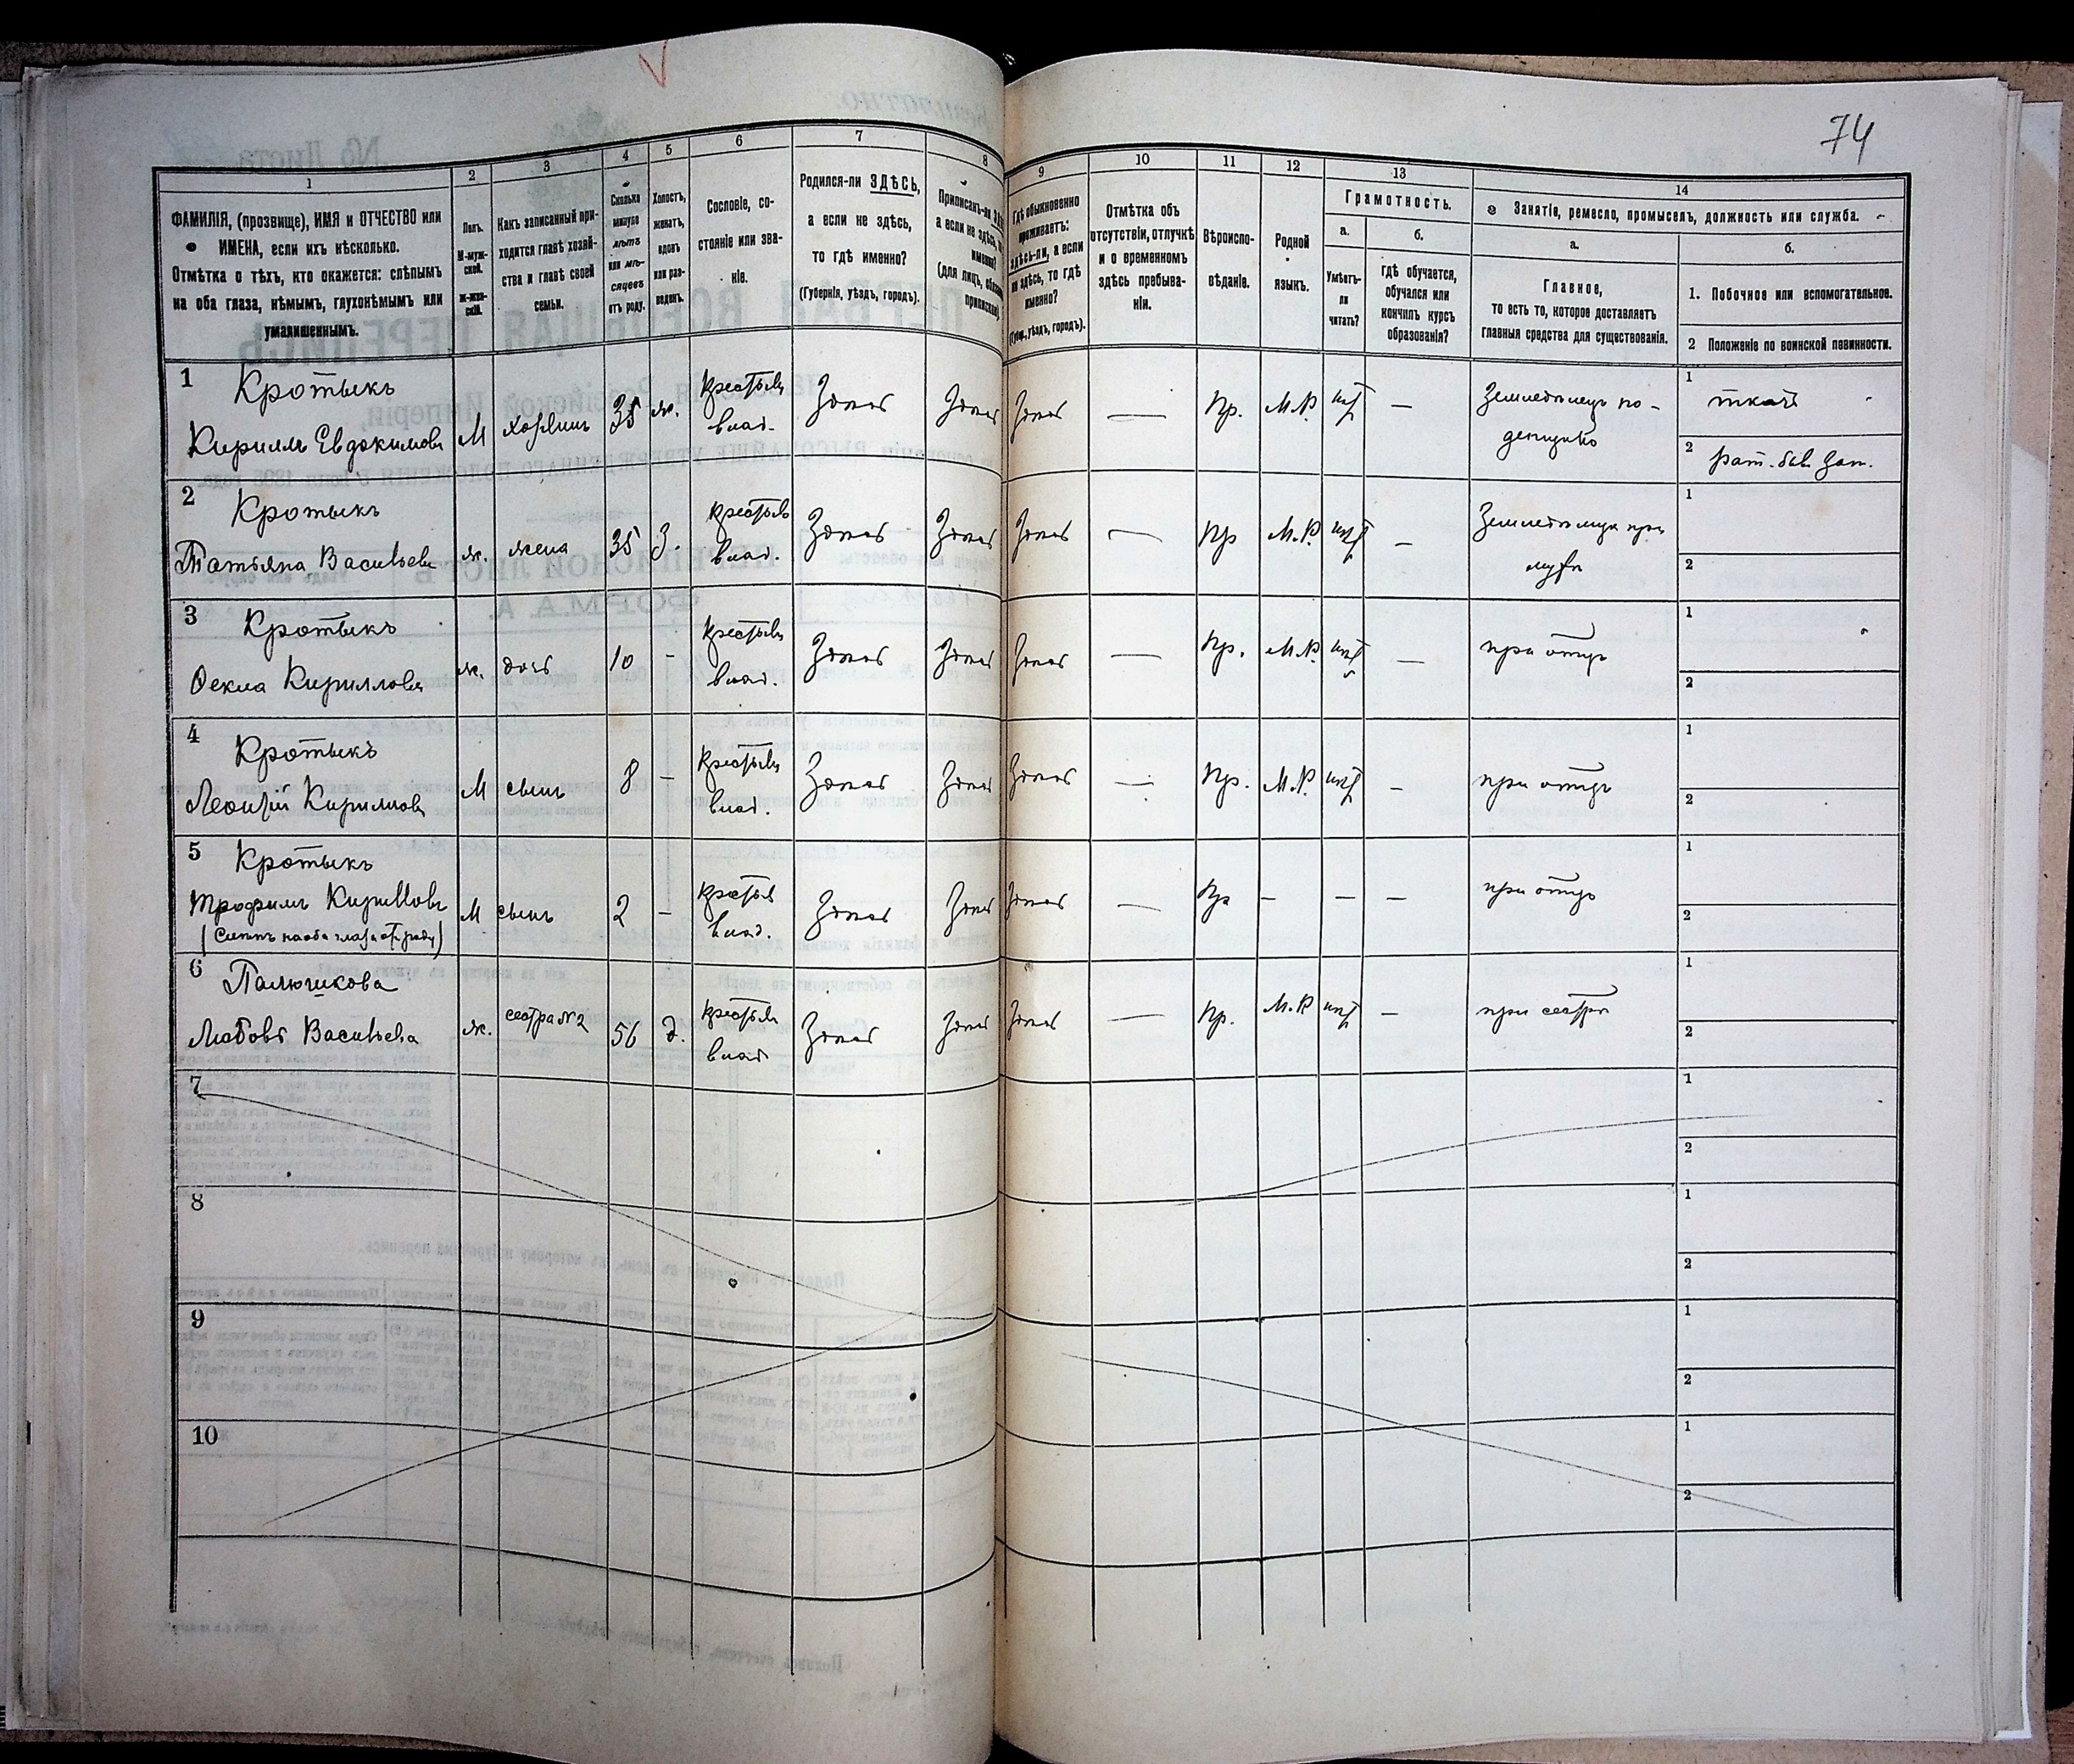 74
1
2
3
4
5
6
7
8
9
10
11
12
13
14
ФАМИЛІЯ, (прозвище), ИМЯ и ОТЧЕСТВО или
ИМЕНА, если ихъ нѣсколько.
Отмѣтка о тѣхъ, кто окажется: слѣпымъ
на оба глаза, нѣмымъ, глухонѣмымъ или
умалишеннымъ.
Полъ.
М-муж-
ской.
Ж-жен-
скій.
Какъ записанный при-
ходится главѣ хозяй-
ства и главѣ своей
семьи.
Сколько
минуло
лѣтъ
или мѣ-
сяцевъ
отъ роду.
Холостъ,
женатъ,
вдовъ
или раз-
веденъ.
Сословіе, со-
стояніе или зва-
ніе.
Родился-ли ЗДѢСЬ,
а если не здѣсь,
то гдѣ именно?
(Губернія, уѣздъ, городъ).
Приписанъ-ли
а если не здѣсь,
именно?
(для лицъ,
Гдѣ обыкновенно
проживаетъ:
здѣсь-ли, а если
не здѣсь, то гдѣ
именно?
(Губ., уѣздъ, городъ).
Отмѣтка объ
отсутствіи, отлучкѣ
и о временномъ
здѣсь пребыва-
ніи.
Вѣроиспо-
вѣданіе.
Родной
языкъ.
Грамотность.
а.
Умѣетъ-
ли
читать?
б.
гдѣ обучается,
обучался или
кончилъ курсъ
образованія?
Занятіе, ремесло, промыселъ, должность или служба.
а.
Главное,
то есть то, которое доставляетъ
главныя средства для существованія.
б.
1. Побочное или вспомогательное.
2 Положеніе по воинской повинности.
1 Кротыкъ
Кириллъ Евдокимовъ М хозяинъ 35 ж. Крестьян. Здѣсь Здѣсь Здѣсь — Пр. М.Р. нѣт — Земледѣлецъ по-
влад. денщико
1 ткачъ
2 рат.
2 Кротыкъ
Татьяна Васильева ж. жена 35 З. Здѣсь Здѣсь Здѣсь — Пр М.Р. нѣт — Земледѣлица при
влад. мужѣ
1
2
3 Кротыкъ
Кириллова ж. дочь 10 - Здѣсь Здѣсь Здѣсь — Пр. М.Р. нѣт — при отцѣ
влад.
1
2
4 Кротыкъ
Леонтій Кирилловъ М сынъ 8 — Здѣсь Здѣсь Здѣсь — Пр. М.Р. нѣт — при отцѣ
влад.
1
2
5 Кротыкъ
Трофимъ Кирилловъ М сынъ 2 — Здѣсь Здѣсь Здѣсь — Пр — — — при отцѣ
(Слѣпъ на оба глаза отъ роду) влад.
1
2
6 Палюшкова
Любовь Васильева ж. сестра №2 56 д. Здѣсь Здѣсь Здѣсь — Пр. М.Р нѣт — при сестрѣ
влад
1
2
7
1
2
8
1
2
9
1
2
10
1
2